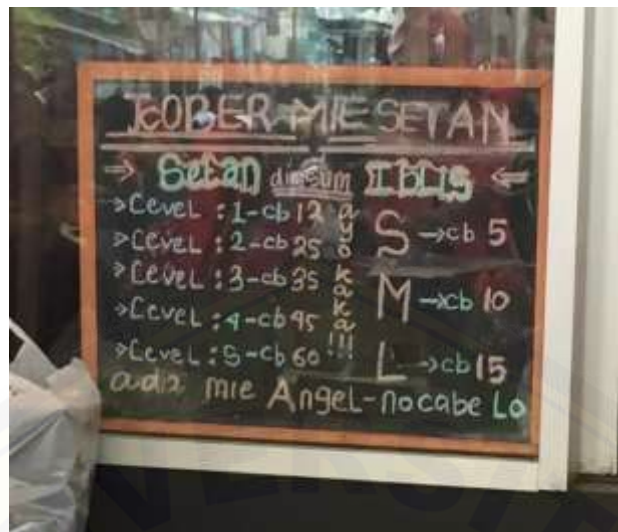 KOBER MIE SETAN
⇒ Setan dimsum IBLIS ⇐
>Level : 1-cb 12
>Level : 2-cb 25
>Level : 3-cb 35
>Level : 4-cb 45
>Level : 5-cb 60
ayo kaka!!!
S →cb 5
M →cb 10
L →cb 15
adia mie Angel-nocabe Lo